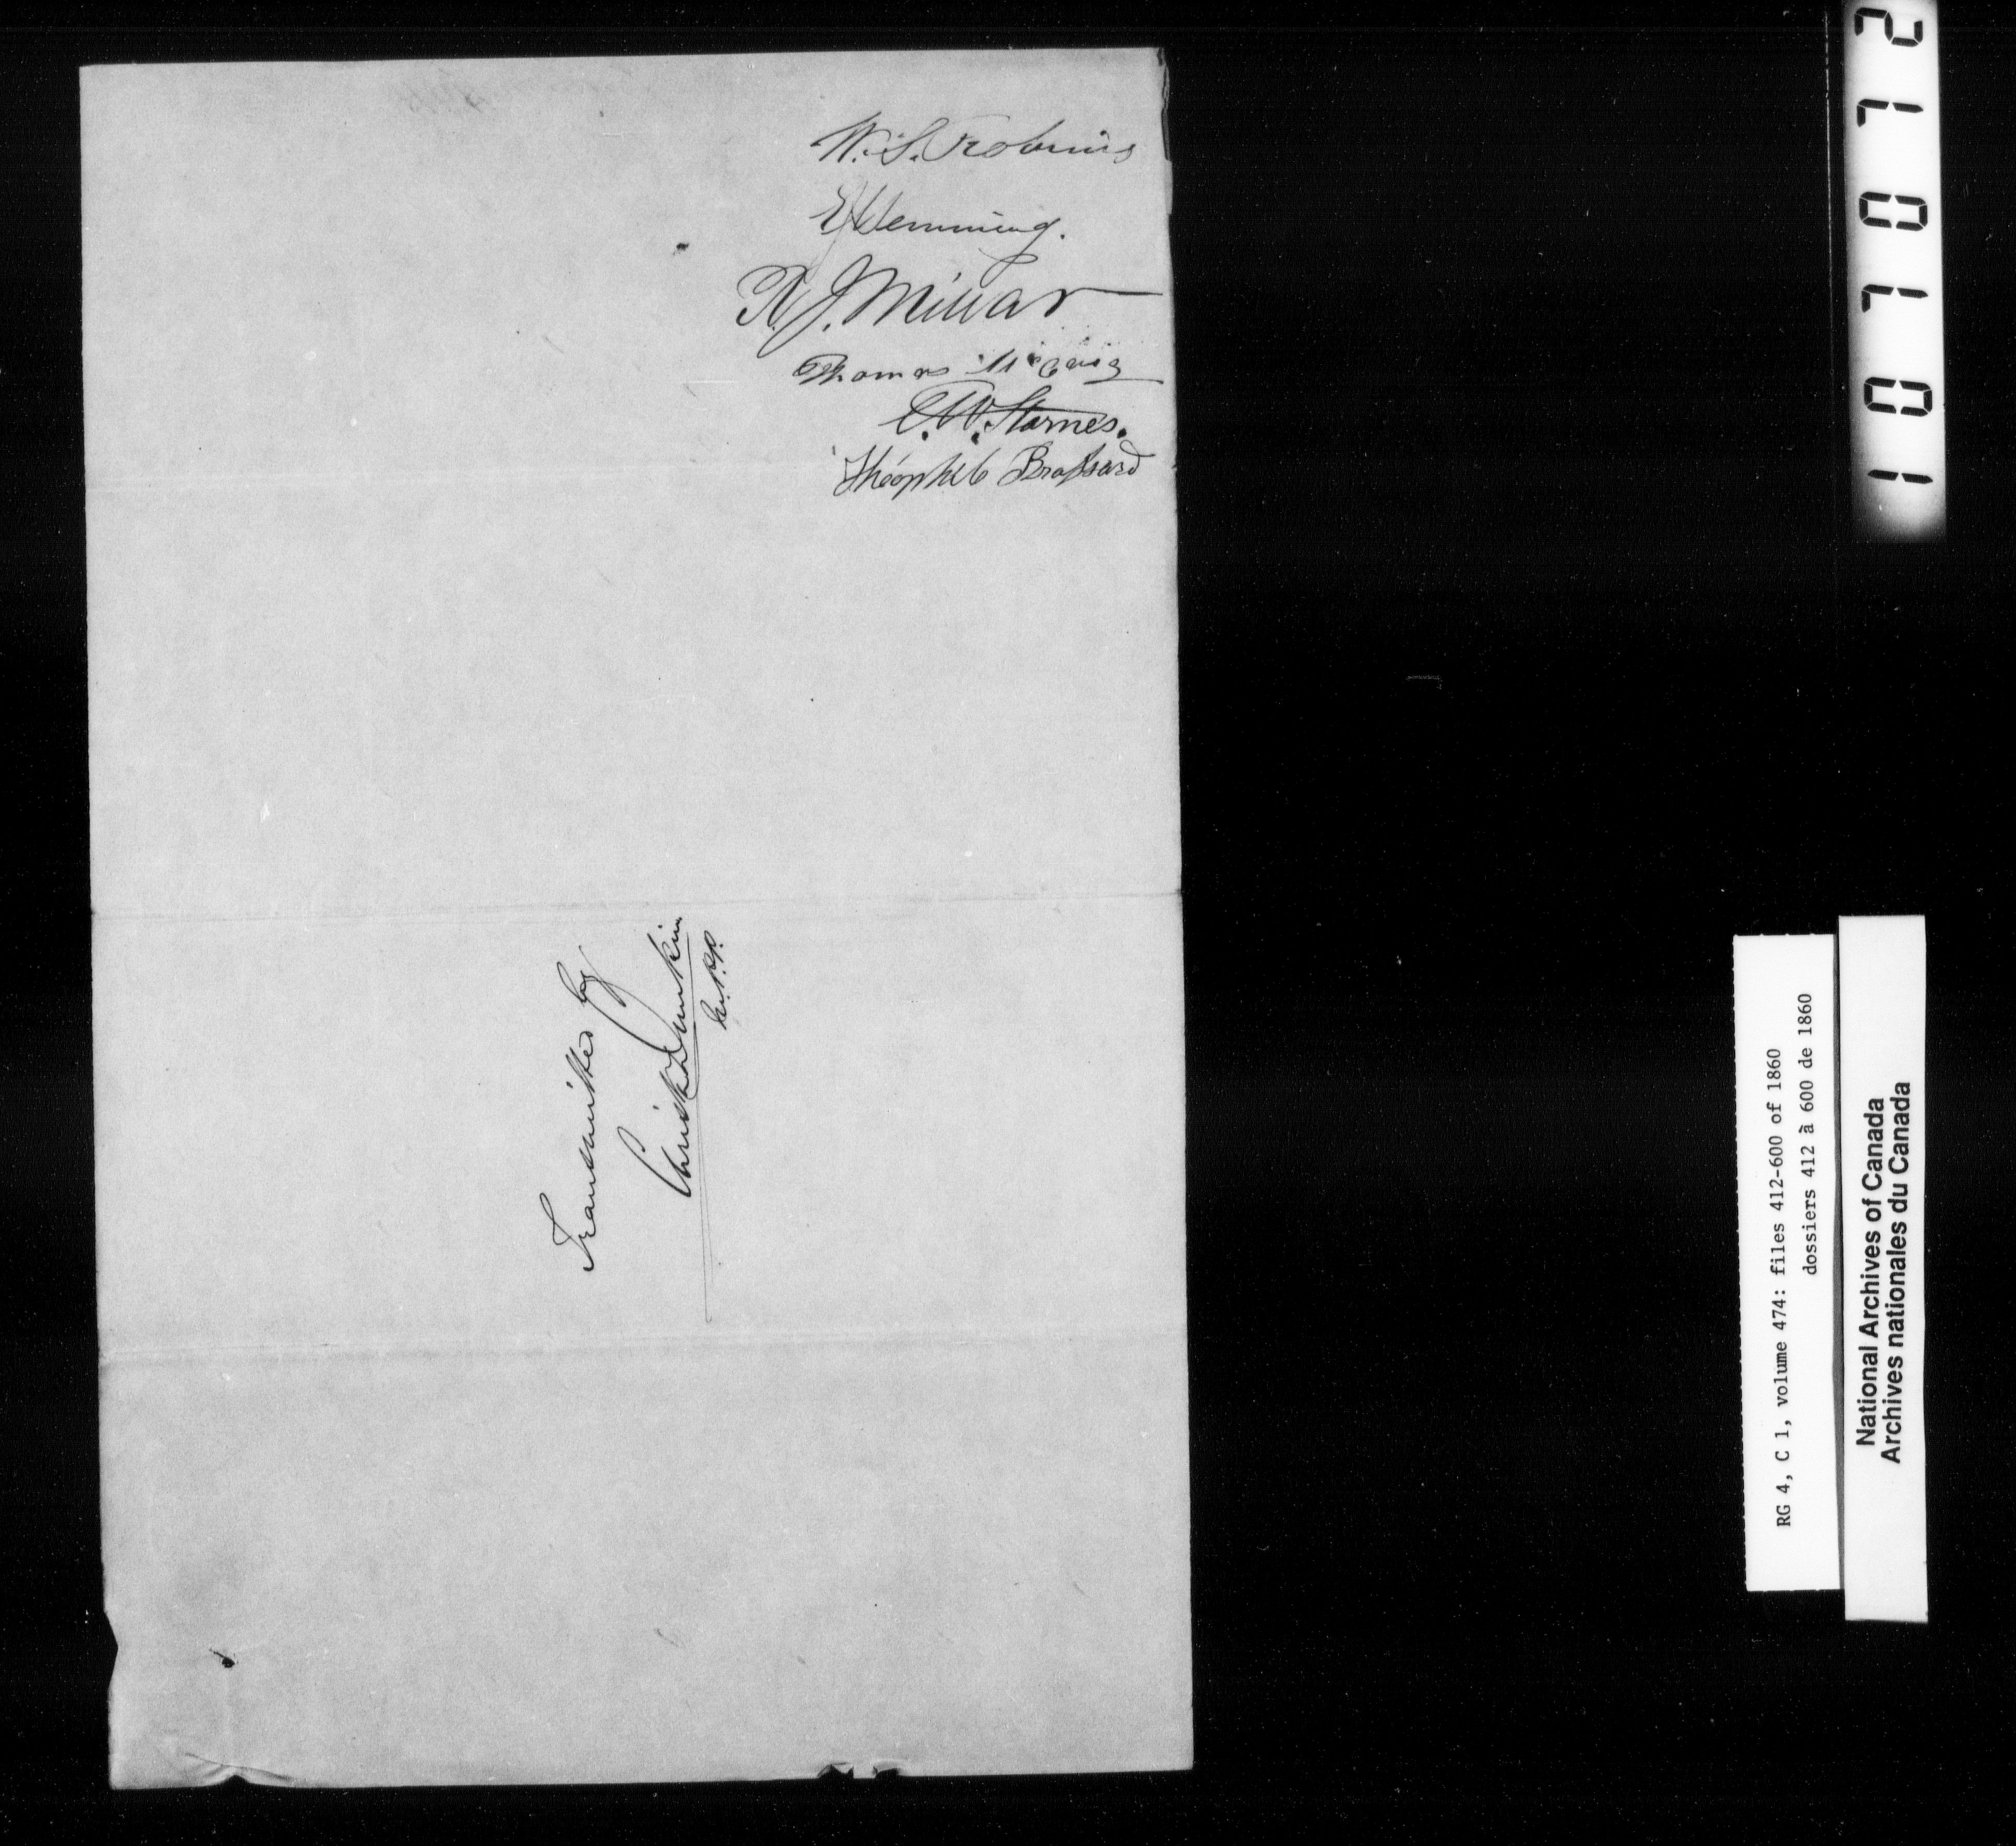 W. S. Robins
E Hemming.
R. J. Millar
Thomas McCaig
C. W. Starnes.
Théophile Brassard
Transmitted by
Christ. Dunkin
M.P.P.
107072
RG 4, C 1, volume 474: files 412-600 of 1860
dossiers 412 à 600 de 1860
National Archives of Canada
Archives nationales du Canada